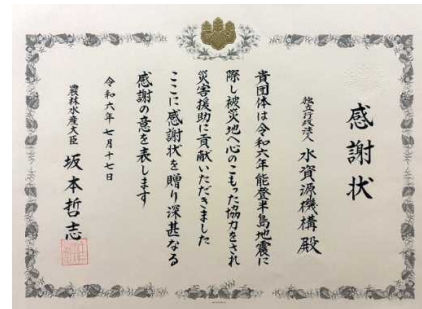 感謝状
独立行政法人 水資源機構 殿
貴団体は令和六年能登半島地震に
際し被災地へ心のこもった協力をされ
災害援助に貢献いただきました
ここに感謝状を贈り深甚なる
感謝の意を表します
令和六年七月十七日
農林水産大臣 坂本哲志